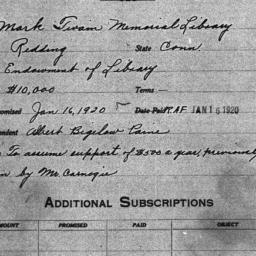 Mark Twain Memorial Library
Redding State Conn.
Endowment of Library
$10,000 Terms—
omised Jan 16, 1920 Date Paid T.AF JAN 16 1920
ondent Albert Bigelow Paine
To assume support of $500 a year, previously
n by Mr. Carnegie
ADDITIONAL SUBSCRIPTIONS
MOUNT PROMISED PAID OBJECT